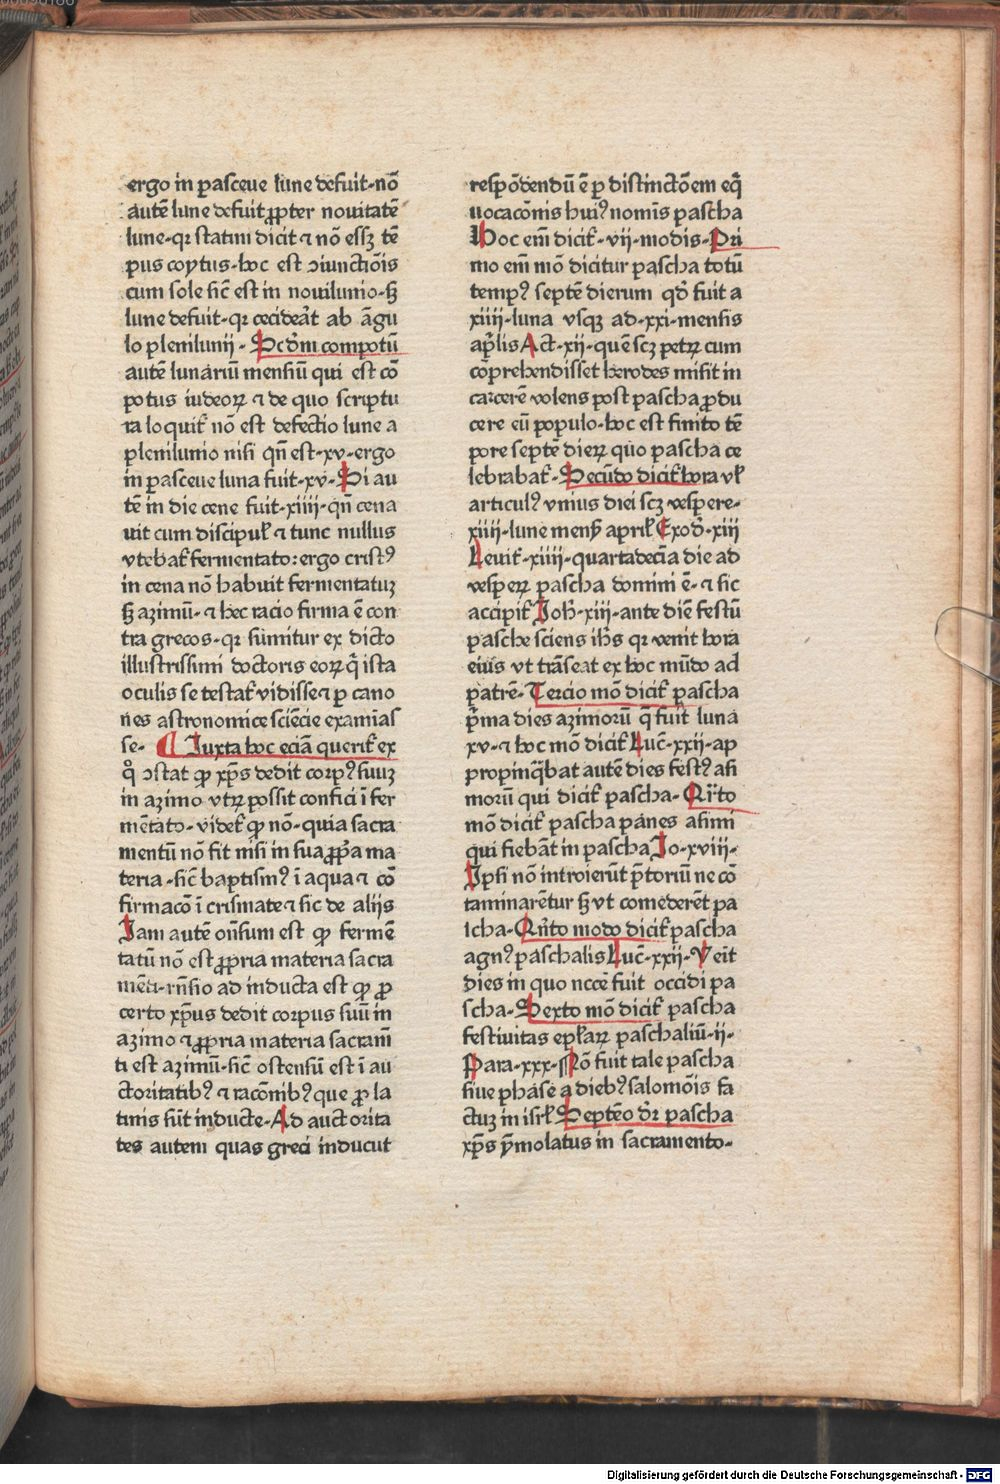 ergo in pasceue lune defuit·nō
autē lune defuit ꝓpter nouitatē
lune·qꝛ statim dicit ⁊ nō essꝫ tē
pus coytus·hoc est ↄiunctiōis
cum sole sic̄ est in nouilunio·sꝫ
lune defuit·qꝛ cecideāt ab āgu
lo plenilunij·Scd̄m compotū
autē lunariū mensiū qui est cō
potus iudeoꝝ ⁊ de quo scriptu
ra loquit̄ nō est defectio lune a
plenilunio nisi qn̄ est·xv·ergo
in pasceue luna fuit·xv·Si au
tē in die cene fuit·xiiii·qn̄ cena
uit cum discipul̄ ⁊ tunc nullus
vtebat̄ fermentato: ergo cristꝰ
in cena nō habuit fermentatuꝫ
sꝫ azimū·⁊ hec racio firma ē con
tra grecos·qꝛ sumitur ex dicto
illustrissimi doctoris eoꝝ q̄ ista
oculis se testat̄ vidisse ⁊ ꝑ cano
nes astronomice sciēcie examīas
se· ¶ Iuxta hoc eciā querit̄ ex
q̊ ↄstat ꝙ xp̄s dedit corpꝰ suuꝫ
in azimo vtꝝ possit confici ī fer
mētato·videt̄ ꝙ nō·quia sacra
mentū nō fit nisi in sua ꝓp̄a ma
teria·sic̄ baptismꝰ ī aqua ⁊ cō
firmacō ī crismate ⁊ sic de alijs
Iam autē on̄sum est ꝙ fermē
tatū nō est ꝓpria materia sacra
mēti·rn̄sio ad inducta est ꝙ ꝓ
certo xp̄us dedit corpus suū in
azimo ⁊ ꝓpria materia sacram̄
ti est azimū·sic̄ ostensū est ī au
ctoritatibꝰ ⁊ racōnibꝰ que ꝓ la
tinis sūt inducte·Ad auctorita
tes autem quas greci inducūt
respōdendū ē ꝑ distinctōem eq̄
uocacōnis huiꝰ nominis pascha
Hoc em̄ dicit̄·vij·modis·Pri
mo em̄ mō dicitur pascha totū
tempꝰ septē dierum qd̄ fuit a
xiiii·luna vsqꝫ ad·xxi·mensis
ap̄lis Act·xij·quē scꝫ petꝝ cum
cōprehendisset herodes misit in
carcerē volens post pascha ꝓdu
cere eū populo·hoc est finito tē
pore septē dieꝝ quo pascha ce
lebrabat̄·Secūdo dicit̄ hora vl̄
articulꝰ vnius diei scꝫ vespere·
xiiii·lune mens̄ april̄ Exod̄·xiii
Leuit̄·xiiii·quartadecīa die ad
vesꝑeꝝ pascha domini ē·⁊ sic
accipit̄ Joh̄·xiii·ante diē festū
pasche sciens ih̄s qꝛ venit hora
eius vt trāseat ex hoc mūdo ad
patrē·Tercio mō dicit̄ pascha
p̄ma dies azimorū q̄ fuit luna
xv·⁊ hoc mō dicit̄ Luc̄·xxii·ap
propinq̄bat autē dies festꝰ asi
morū qui dicit̄ pascha·Qr̄to
mō dicit̄ pascha panes asimi
qui fiebāt in pascha Jo·xviii·
Ipsi nō introierūt p̄toriū ne cō
taminarētur sꝫ vt comederēt pa
scha·Qn̄to modo dicit̄ pascha
agnꝰ paschalis Luc̄·xxii·Veīt
dies in quo necc̄e fuit occidi pa
scha·Sexto mō dicit̄ pascha
festiuitas epl̄aꝝ paschaliū·ii·
Para·xxx·Nō fuit tale pascha
siue phase a diebꝰ salomōis fa
ctuꝫ in isrl̄ Septēo dr̄ pascha
xp̄s ymolatus in sacramento·
Digitalisierung gefördert durch die Deutsche Forschungsgemeinschaft - DFG